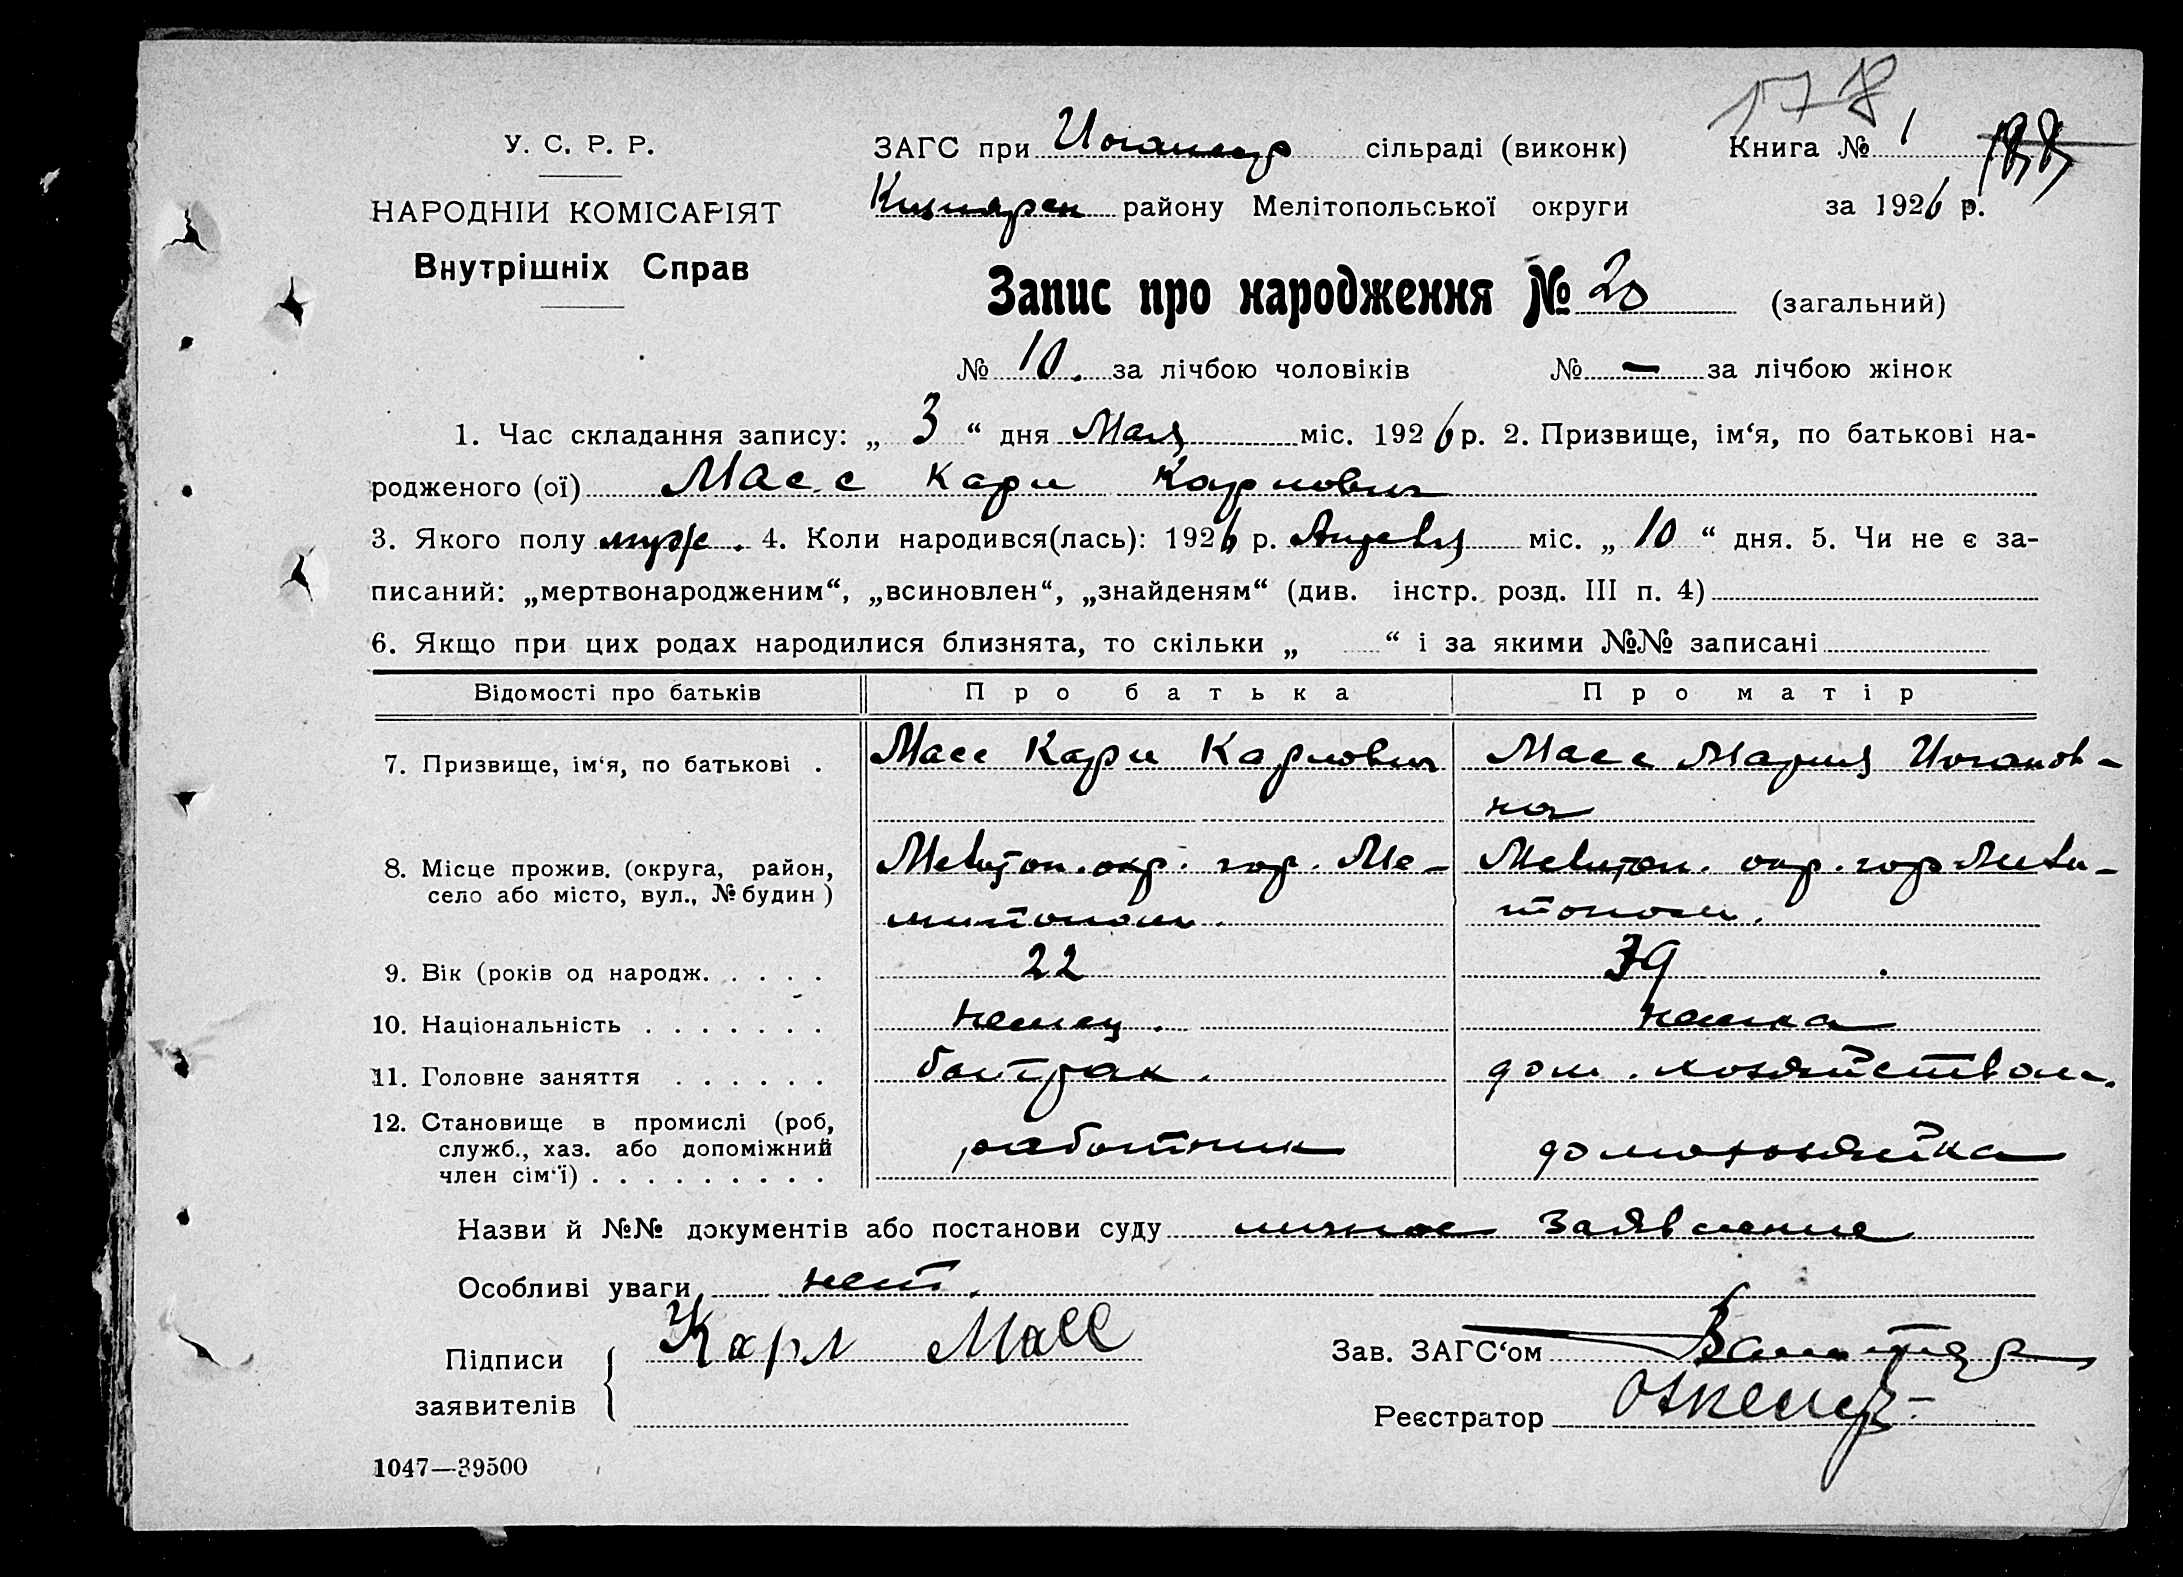 178
У. С. Р. Р.
ЗАГС при сільраді (виконк) Книга № 1
НАРОДНІЙ КОМІСАРІЯТ
району Мелітопольської округи за 1926 р.
Внутрішніх Справ
Запис про народження № 20 (загальний)
№ 10. за лічбою чоловіків № — за лічбою жінок
1. Час складання запису: „ 3 “ дня Мая міс. 1926 р. 2. Призвище, ім‘я, по батькові на-
родженого (ої) Масс Карл Карлович
3. Якого полу муж. 4. Коли народився(лась): 1926 р. Апреля міс. „ 10 “ дня. 5. Чи не є за-
писаний: „мертвонародженим“, „всиновлен“, „знайденям“ (див. інстр. розд. III п. 4)
6. Якщо при цих родах народилися близнята, то скільки „ “ і за якими №№ записані
Відомості про батьків Про батька Про матір
7. Призвище, ім‘я, по батькові . Масс Карл Карлович Масс Мария Иоганов-
на
8. Місце прожив. (округа, район, Мелитоп. окр. гор. Ме- Мелитоп. окр. гор Мели-
село або місто, вул., № будин ) литополь. тополь.
9. Вік (років од народж. . . . . 22 39
10. Національність . . . . . . . немец. немка
11. Головне заняття . . . . . . батрак. дом. хозяйством.
12. Становище в промислі (роб,
служб., хаз. або допоміжний работник домохозяйка
член сім‘ї) . . . . . . . . .
Назви й №№ документів або постанови суду личное заявление
Особливі уваги нет.
Підписи Карл Масс Зав. ЗАГС‘ом
заявителів Реєстратор
1047—39500